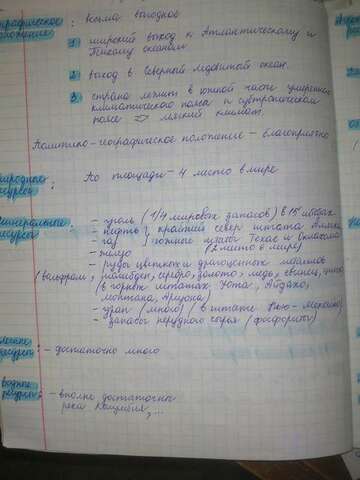 ографическое : Весьма выгодное
положение
1 широкий выход к Атлантическому и
Тихому океанам
2 выход в Северный ледовитый океан.
3 страна лежит в южной части умеренного
климатического пояса и субтропическом
поясе ⇒ мягкий климат.
Политико-географическое положение – благоприятно
природные
ресурсы : По площади – 4 место в мире
минеральные
ресурсы : – уголь (1/4 мировых запасов) в 15 штатах
– нефть } крайний север штата Аляска
– газ } южные штаты Техас и Оклахома
– железо (2 место в мире)
– руды цветных и драгоценных металлов
(вольфрам, молибден, серебро, золото, медь, свинец, цинк)
(в горных штатах Юта, Айдахо,
Монтана, Аризона)
– уран (много) (в штате Нью-Мексико)
– запасы нерудного сырья (фосфориты)
ресурсы : – достаточно много
водные
ресурсы : – вполне достаточны
река Колумбия, ...